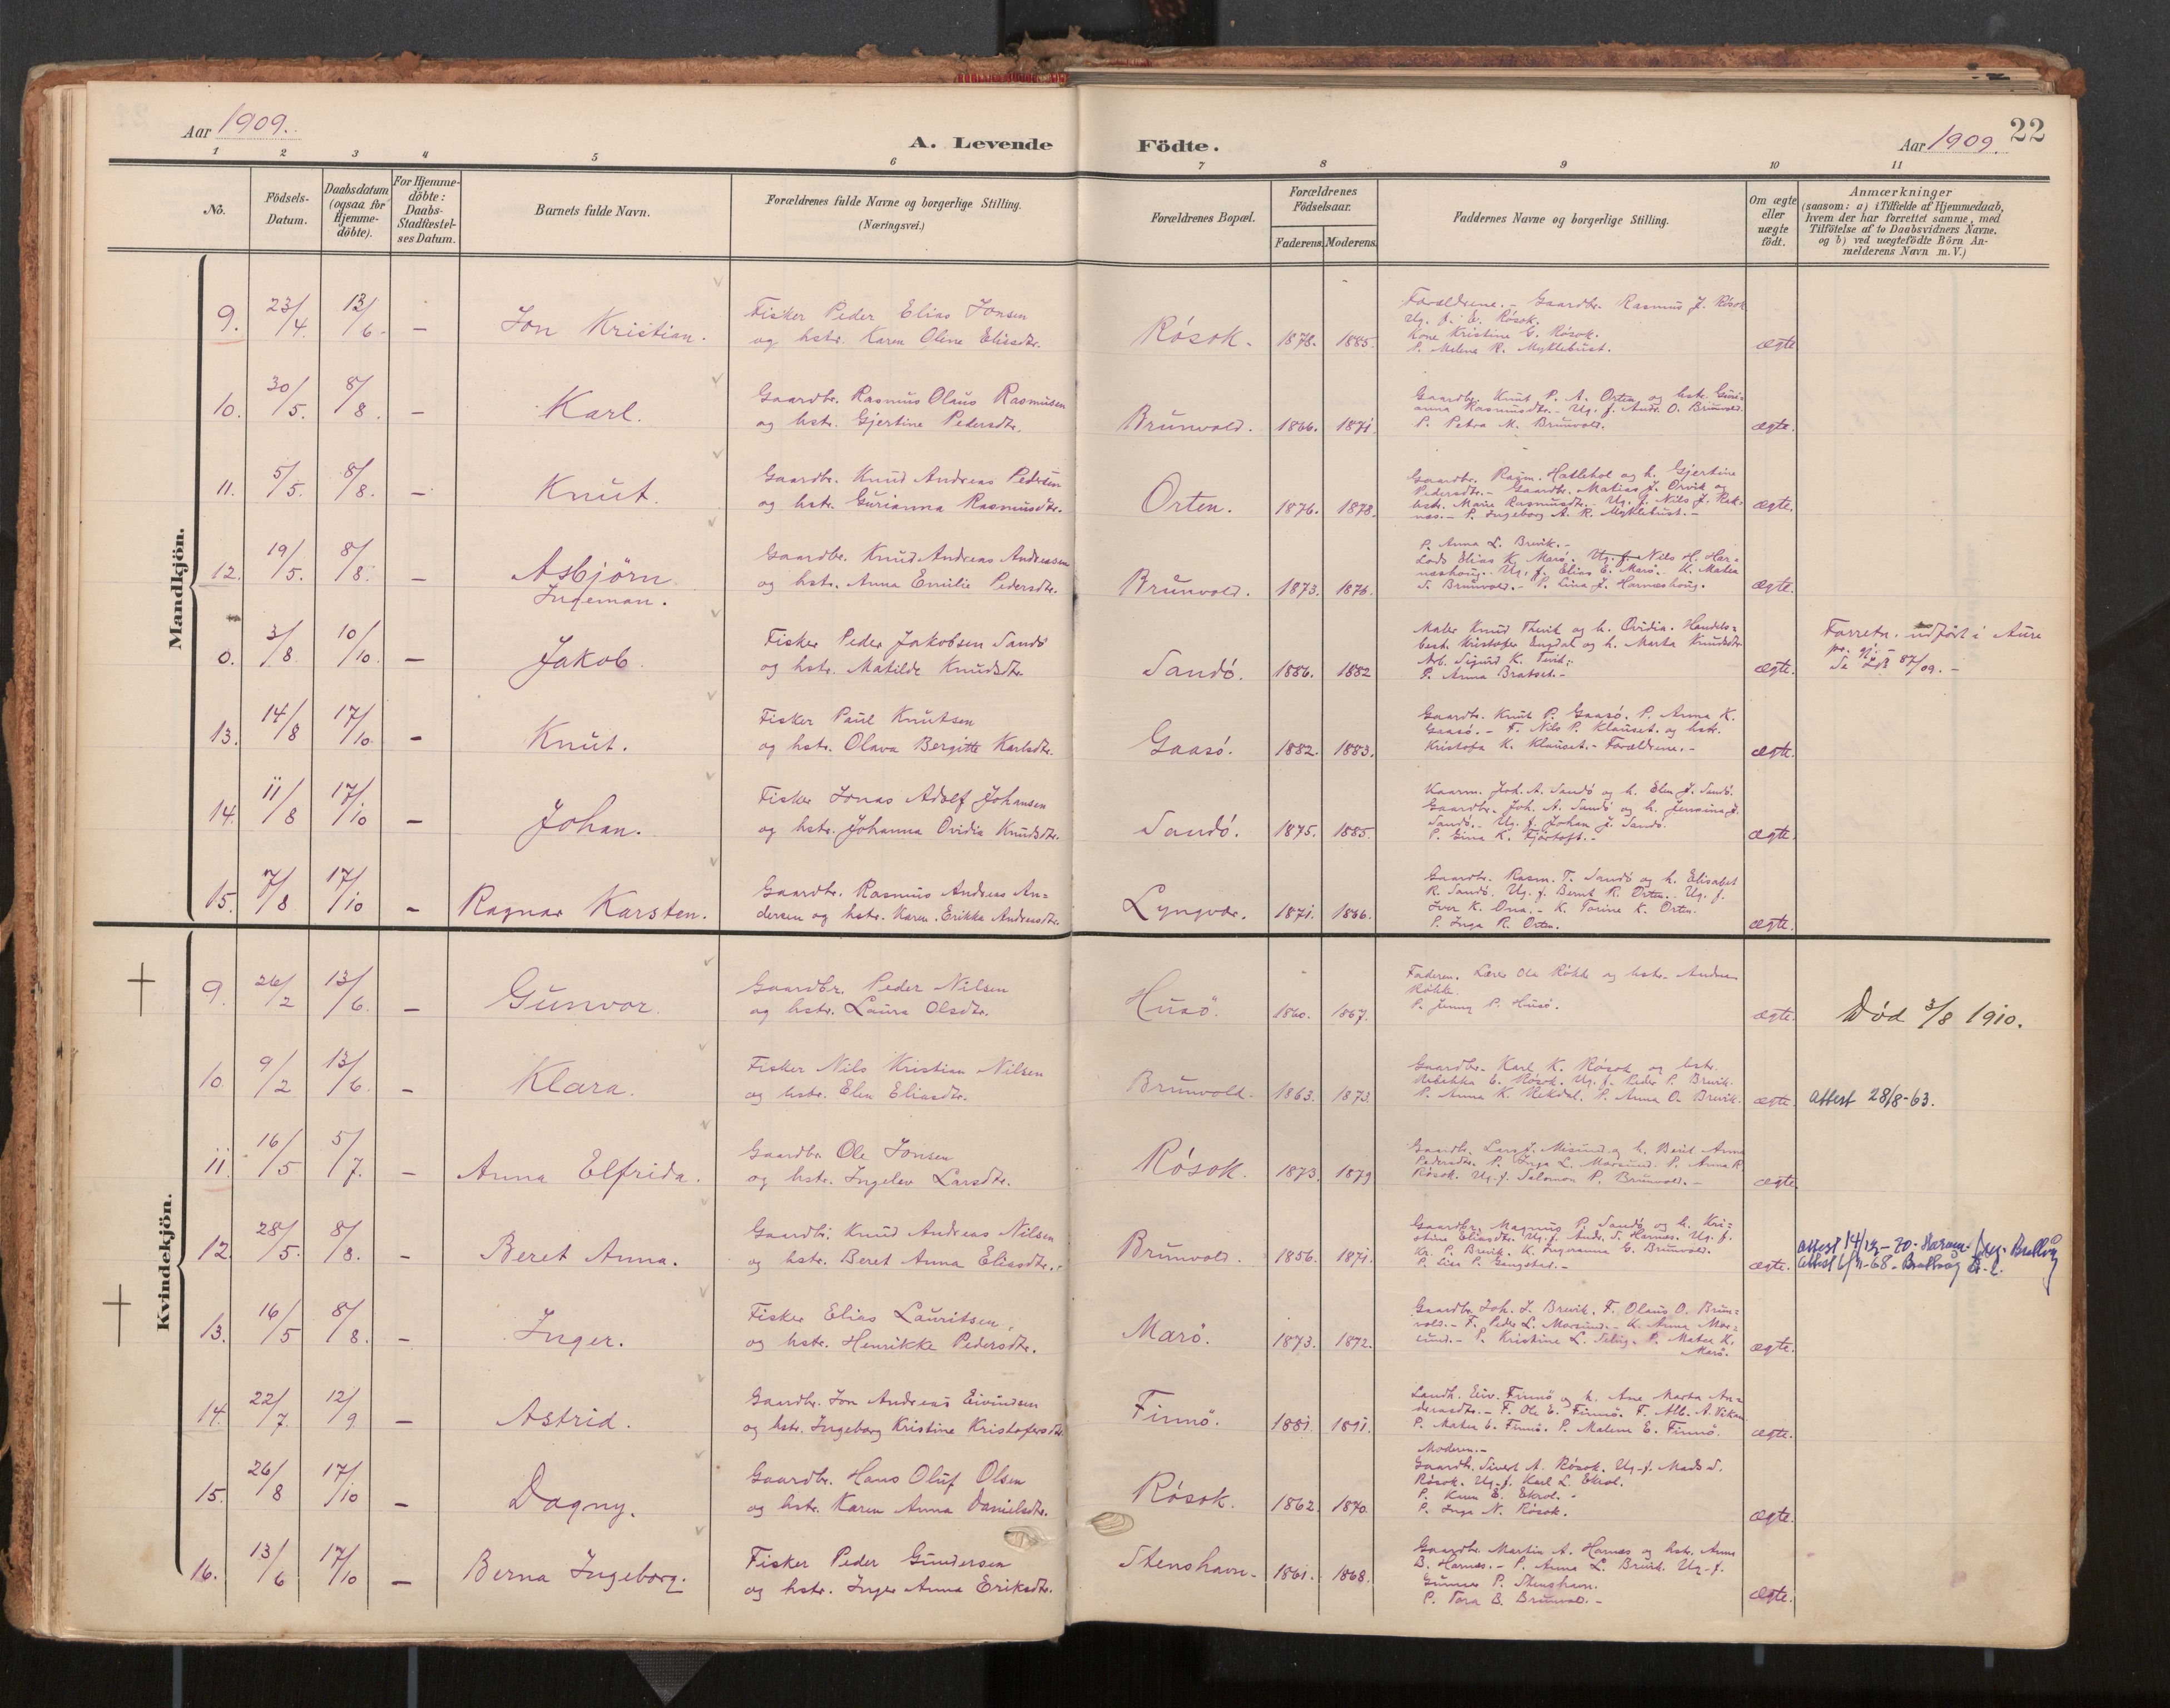 Aar 1909.
A. Levende Födte.
Aar 1909.
22
1 2 3 4 5 6 7 8 9 10 11
No.
Födsels-
Datum.
Daabsdatum
(ogsaa for
Hjemme-
döbte).
For Hjemme-
döbte:
Daabs-
Stadfæstel-
ses Datum.
Barnets fulde Navn.
Forældrenes fulde Navne og borgerlige Stilling.
(Næringsvei.)
Forældrenes Bopæl.
Forældrenes
Födselsaar.
Faderens. Moderens.
Faddernes Navne og borgerlige Stilling.
Om ægte
eller
uægte
födt.
Anmærkninger
(saasom: a) i Tilfælde af Hjemmedaab,
hvem der har forrettet samme, med
Tilföielse af to Daabsvidners Navne,
og b) ved uægtefödte Börn An-
melderens Navn m. V.)
Mandkjön.
9. 23/4. 13/6. - Jon Kristian.
Fisker Peder Elias Jonsen
og hstr. Karen Oline Eliasdtr.
Rósok. 1878. 1885.
Forældrene. - Gaardbr. Rasmus J. Rósok
Ug. f. E. Rósok.
Kone Kristine E. Rósok.
P. Malene R. Myklebust.
ægte
10. 30/5. 8/8. - Karl.
Gaardbr. Rasmus Olaus Rasmusen
og hstr. Gjertine Pedersdtr.
Brunvold. 1866. 1871.
Gaardbr. Knut P. A. Orten og hstr. Guri-
anna Rasmusdtr. - Ug. f. Andr. O. Brunvold.
P. Petra M. Brunvold.
ægte.
11. 5/5. 8/8. - Knut.
Gaardbr. Knud Andreas Pedersen
og hstr. Gurianna Rasmusdtr.
Orten. 1876. 1878.
Gaardbr. Rasm. Hatlehol og h. Gjertine
Pedersdtr. - Gaardbr. Matias J. Orvik og
hstr. Marie Rasmusdtr. Ug. f. Nils J. Rek-
næs. - P. Ingeborg A. R. Myklebust. -
ægte.
12. 19/5. 8/8. - Asbjörn
Ingeman.
Gaardbr. Knud Andreas Andreassen
og hstr. Anna Emilie Pedersdtr.
Brunvold. 1873. 1876.
P. Anna L. Brevik. -
Lods Elias K. Maró. Ug. f. Nils H. Har-
neshoug. Ug. f. Elias E. Maró. K. Matea
S. Brunvold. - P. Lina J. Harneshoug.
ægte.
0. 3/8 10/10. - Jakob.
Fisker Peder Jakobsen Sandó
og hstr. Matilde Knudsdtr.
Sandó. 1886. 1882
Maler Knud Thevik og h. Ovidia. Handels-
best. Kristofer Engdal og h. Marta Knudsdtr.
Arb. Sigurd K. Tevik.
P. Anna Bratset. -
ægte.
Forretn. udført i Aure
pr. gj. -
Se 87/09. -
13. 14/8 17/10. - Knut.
Fisker Paul Knutsen
og hstr. Olava Bergitte Karlsdtr.
Gaasó. 1882. 1883.
Gaardbr. Knut P. Gaasó. P. Anna K.
Gaasó. - F. Nils P. Klauset. og hstr.
Kristofa K. Klauset. - Forældrene. -
ægte.
14. 11/8 17/10 - Johan.
Fisker Jonas Adolf Johansen
og hstr. Johanna Ovidia Knudsdtr.
Sandó. 1875. 1885.
Kaarm. Joh. A. Sandó og h. Elen J. Sandó.
Gaardbr. Joh. A. Sandó og h. Jensina J.
Sandó. - Ug. f. Johan J. Sandó.
P. Gina K. Fjörtoft. -
ægte.
15. 7/8 17/10 - Ragnar Karsten.
Gaardbr. Rasmus Andreas An-
dersen og hstr. Karen Erikke Andreasdtr.
Lyngvær. 1871. 1866.
Gaardbr. Rasm. T. Sandó og h. Elisabet
R. Sandó. Ug. f. Bernt R. Orten. Ug. f.
Iver K. Ona. - K. Torine K. Orten.
P. Inga R. Orten.
ægte.
Kvindekjön.
9. 26/2 13/6. - Gunvor.
Gaardbr. Peder Nilsen
og hstr. Laura Olsdtr.
Husö. 1860. 1867.
Faderen. Lærer Ole Rökke og hstr. Andrea
Rökke.
P. Jenny P. Husó.
ægte.
Död 3/8 1910.
10. 9/2 13/6. - Klara.
Fisker Nils Kristian Nilsen
og hstr. Elen Eliasdtr.
Brunvold. 1863. 1873.
Gaardbr. Karl K. Rósok og hstr.
Rebekka E. Rósok. Ug. f. Peder P. Brevik.
P. Anna K. Rekdal. P. Anna O. Brevik.
ægte.
Attest 28/8-63.
11. 16/5 5/7. - Anna Elfrida.
Gaardbr. Ole Jonsen
og hstr. Ingelev Larsdtr.
Rósok. 1873. 1879
Gaardbr. Lars J. Misund og h. Berit Anna
Pedersdtr. P. Inga L. Morsund. P. Anna R.
Rósok. Ug. f. Salomon P. Brunvold. -
ægte.
12. 28/5. 8/8. - Beret Anna.
Gaardbr. Knud Andreas Nilsen
og hstr. Beret Anna Eliasdtr.
Brunvold. 1856. 1871.
Gaardbr. Magnus P. Sandó og h. Kri-
stine Eliasdtr. Ug. f. Andr. S. Harnes. Ug. f.
Kr. P. Brevik. K. Ingeranna E. Brunvold.
P. Lisa P. Gangstad. -
ægte.
Attest 14/12-70. Haram Brattvåg
Attest 6/11-68. Brattvåg
13. 16/5 8/8. - Inger.
Fisker Elias Lauritsen.
og hstr. Henrikke Pedersdtr.
Maró. 1873. 1872.
Gaardbr. Joh. J. Brevik. F. Olaus O. Brun-
vold. - F. Peder L. Morsund. - K. Anna Mor-
sund. - P. Kristine L. P. Matea K.
Maró.
ægte.
14. 22/7. 12/9 - Astrid.
Gaardbr. Jon Andreas Eivindsen
og hstr. Ingeborg Kristine Kristofersdtr.
Finnó. 1881. 1891.
Landh. Eiv. Finnó og h. Ane Marta An-
dersdtr. - F. Ole E. Finnó. F. Alb. A. Vikan
P. Matea E. Finnó. P. Malene E. Finnó.
ægte.
15. 26/8 17/10 - Dagny.
Gaardbr. Hans Oluf Olsen
og hstr. Karen Anna Danielsdtr.
Rósok. 1862. 1870.
Moderen. -
Gaardbr. Sivert A. Rósok. Ug. f. Mads S.
Rósok. Ug. f. Karl L. Ekrol.
P. E. Ekrol.
P. Inga N. Rósok.
ægte.
16. 13/6 17/10 - Berna Ingeborg.
Fisker Peder Gundersen
og hstr. Inger Anna Eriksdtr.
Stenshavn. 1861. 1868.
Gaardbr. Martin A. Harnes og hstr. Anna
B. Harnes. - P. Anna L. Brevik. Ug. f.
Gunnar P. Stenshavn.
P. Tora B. Brunvold. -
ægte.